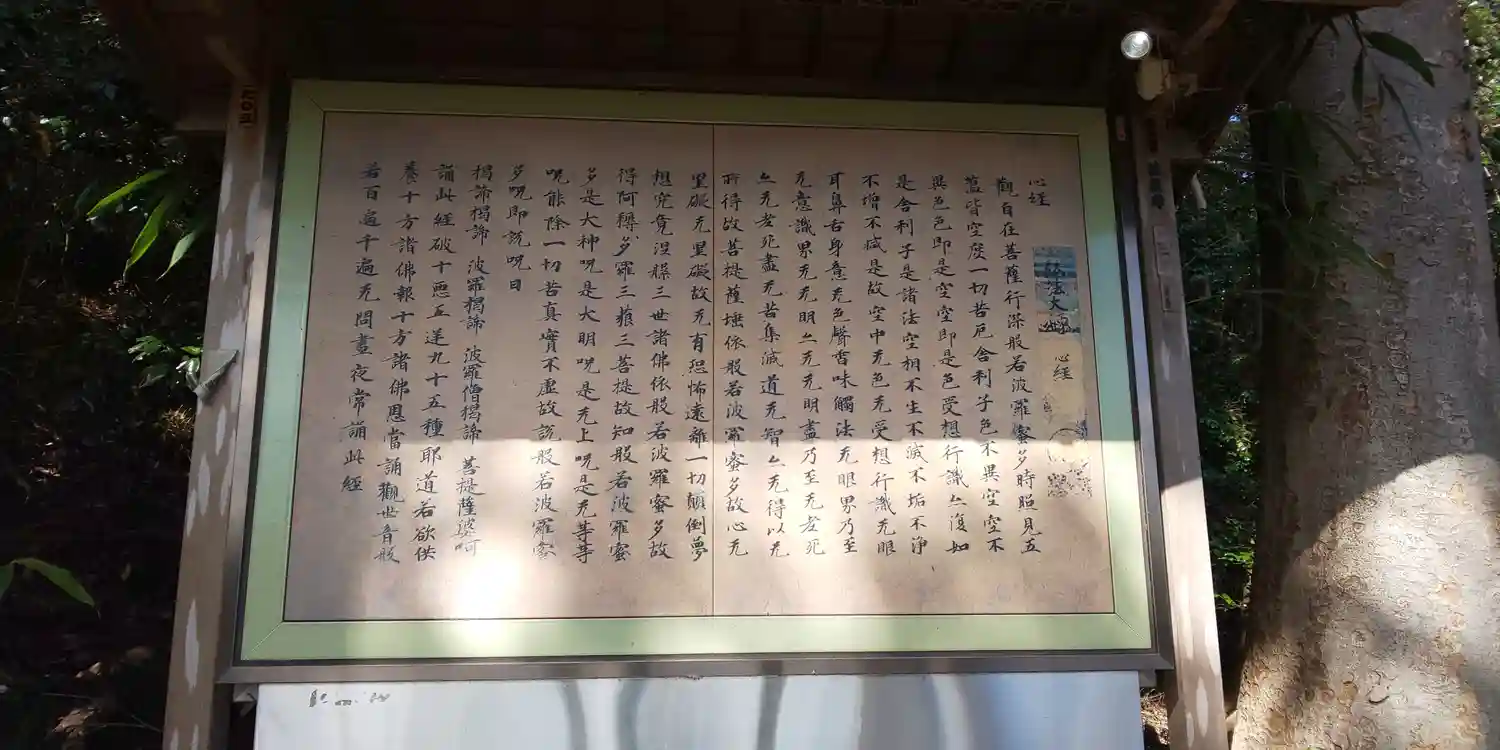 心経
觀自在菩薩行深般若波羅蜜多時照見五
蘊皆空度一切苦厄舎利子色不異空空不
異色色即是空空即是色受想行識亦復如
是舎利子是諸法空相不生不滅不垢不浄
不増不減是故空中无色无受想行識无眼
耳鼻舌身意无色聲香味觸法无眼界乃至
无意識界无无明亦无无明盡乃至无老死
亦无老死盡无苦集滅道无智亦无得以无
所得故菩提薩埵依般若波羅蜜多故心无
罣礙无罣礙故无有恐怖遠離一切顛倒夢
想究竟涅槃三世諸佛依般若波羅蜜多故
得阿耨多羅三藐三菩提故知般若波羅蜜
多是大神呪是大明呪是无上呪是无等等
呪能除一切苦真實不虛故説般若波羅蜜
多呪即説呪曰
揭諦揭諦 波羅揭諦 波羅僧揭諦 菩提薩婆呵
誦此經破十惡五逆九十五種耶道若欲供
養十方諸佛報十方諸佛恩當誦觀世音般
若百遍千遍无問晝夜常誦此經
弘法大師
心経